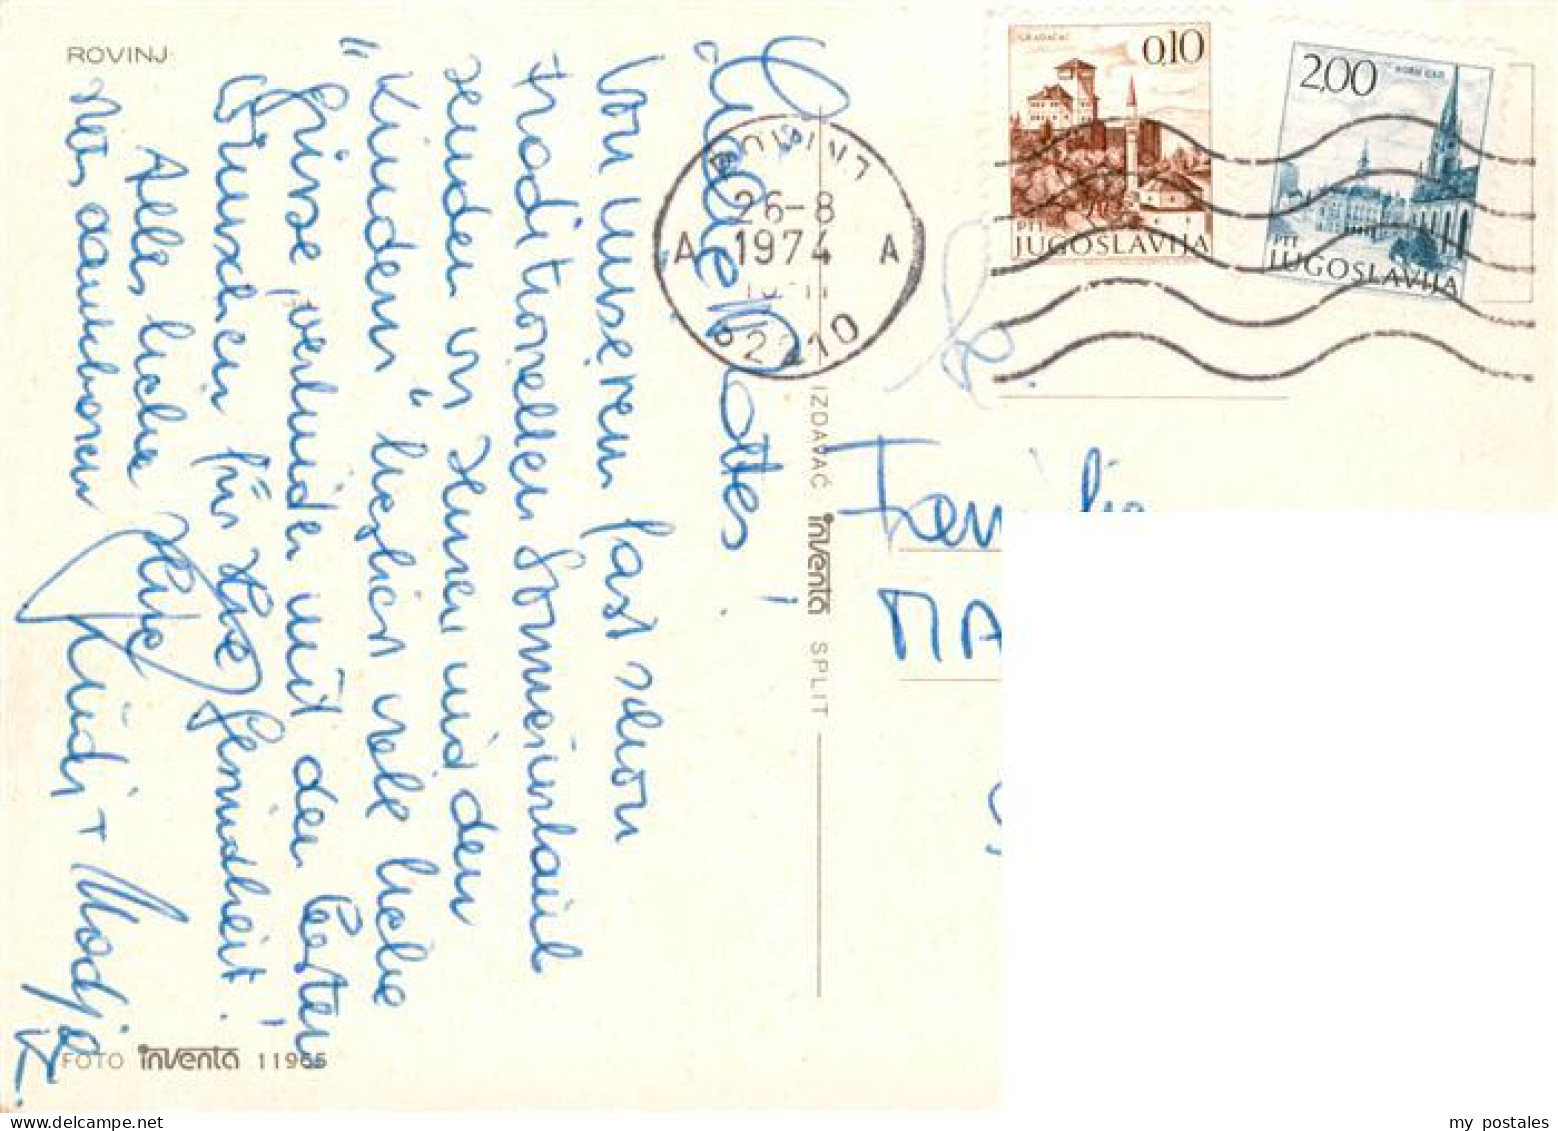 ROVINJ
Liebe
Von unserem fast schon
traditionellen Sommerurlaub
senden wir Ihnen und den
"Kindern" herzlich viele liebe
Grüsse, verbunden mit den besten
Wünschen für Ihre Gesundheit!
Alles liebe Ihre
Rüdi +
FOTO inventa 11965
IZDAVAČ inventa SPLIT
ROVINJ
26-8
1974
A A
52210
GRADAČAC
0,10
PTT
JUGOSLAVIJA
2,00
NOVI SAD
PTT
JUGOSLAVIJA
Familie
MA
my postales